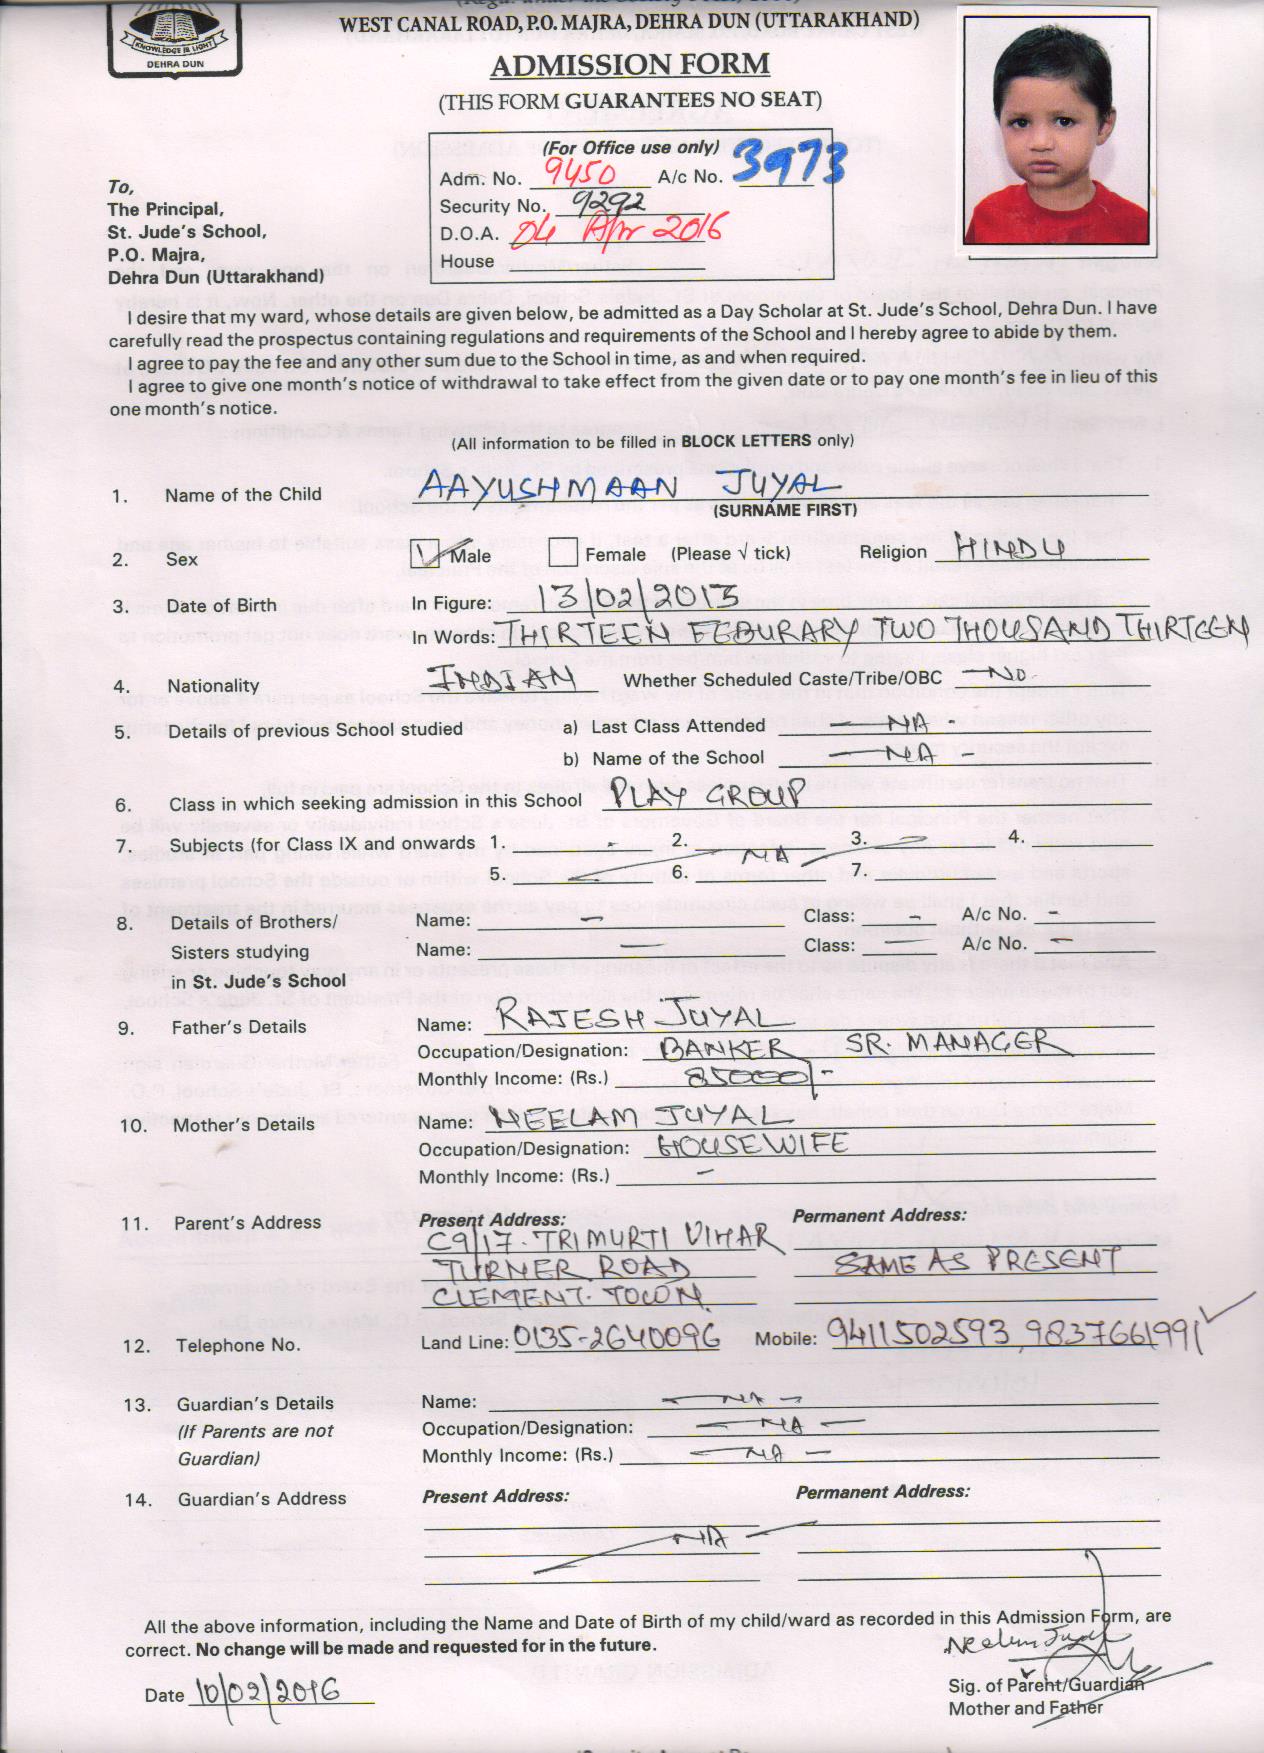 WEST CANAL ROAD, P.O. MAJRA, DEHRA DUN (UTTARAKHAND)
KNOWLEDGE IS LIGHT
DEHRA DUN
ADMISSION FORM
(THIS FORM GUARANTEES NO SEAT)
(For Office use only)
Adm. No. 9450 A/c No. 3973
Security No. 9292
D.O.A. 04 Apr 2016
House
To,
The Principal,
St. Jude's School,
P.O. Majra,
Dehra Dun (Uttarakhand)
I desire that my ward, whose details are given below, be admitted as a Day Scholar at St. Jude's School, Dehra Dun. I have
carefully read the prospectus containing regulations and requirements of the School and I hereby agree to abide by them.
I agree to pay the fee and any other sum due to the School in time, as and when required.
I agree to give one month's notice of withdrawal to take effect from the given date or to pay one month's fee in lieu of this
one month's notice.
(All information to be filled in BLOCK LETTERS only)
1. Name of the Child AAYUSHMAAN JUYAL
(SURNAME FIRST)
2. Sex Male Female (Please √ tick) Religion HINDU
3. Date of Birth In Figure: 13/02/2013
In Words: THIRTEEN FEBURARY TWO THOUSAND THIRTEEN
4. Nationality INDIAN Whether Scheduled Caste/Tribe/OBC —NO.
5. Details of previous School studied a) Last Class Attended — NA -
b) Name of the School — NA -
6. Class in which seeking admission in this School PLAY GROUP
7. Subjects (for Class IX and onwards 1. - 2. 3. 4.
5. 6. NA 7.
8. Details of Brothers/ Name: — Class: - A/c No. -
Sisters studying Name: — Class: — A/c No. -
in St. Jude's School
9. Father's Details Name: RAJESH JUYAL
Occupation/Designation: BANKER SR. MANAGER
Monthly Income: (Rs.) 85000/-
10. Mother's Details Name: NEELAM JUYAL
Occupation/Designation: HOUSEWIFE
Monthly Income: (Rs.) -
11. Parent's Address Present Address: Permanent Address:
C9/17. TRIMURTI VIHAR
TURNER ROAD SAME AS PRESENT
CLEMENT. TOWN.
12. Telephone No. Land Line: 0135-2640096 Mobile: 9411502593, 9837661991
13. Guardian's Details Name: — NA -
(If Parents are not Occupation/Designation: — NA —
Guardian) Monthly Income: (Rs.) — NA —
14. Guardian's Address Present Address: Permanent Address:
NA —
All the above information, including the Name and Date of Birth of my child/ward as recorded in this Admission Form, are
correct. No change will be made and requested for in the future.
Neelam Juyal
Date 10/02/2016 Sig. of Parent/Guardian
Mother and Father